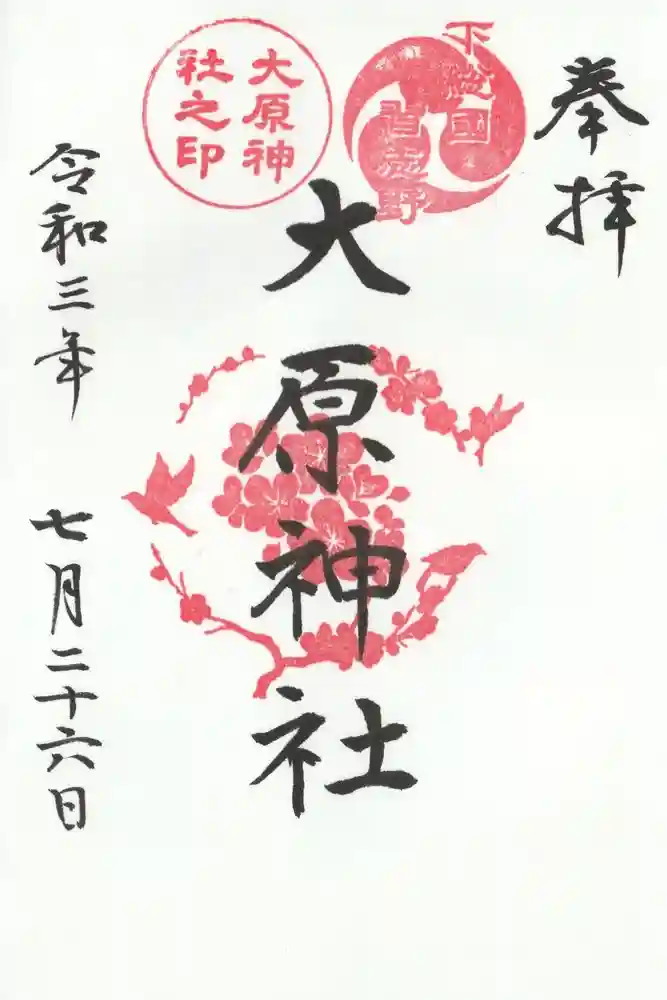 奉拝
下総國
習志野
大原神
社之印
大原神社
令和三年 七月二十六日